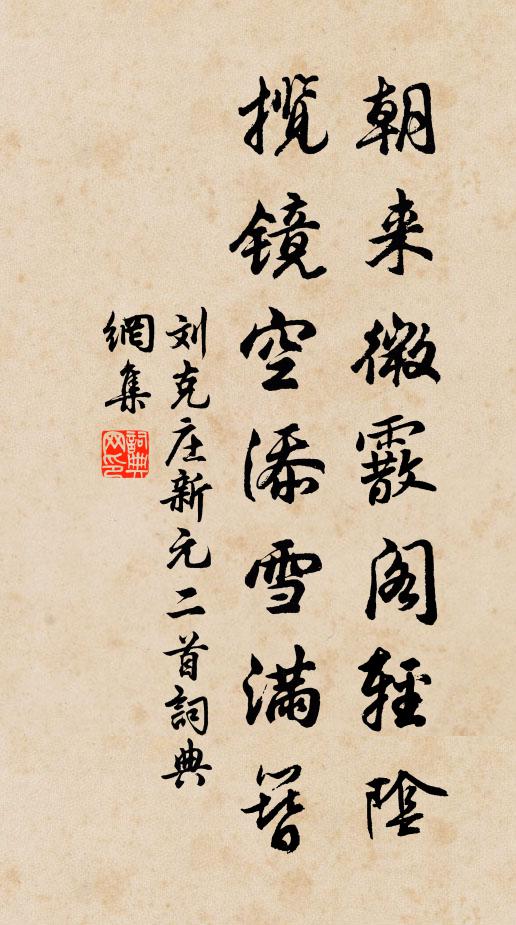 朝来微霰阁輕陰
揽镜空添雪满簪
刘克庄新元二首詞典
網集
詞典
网印